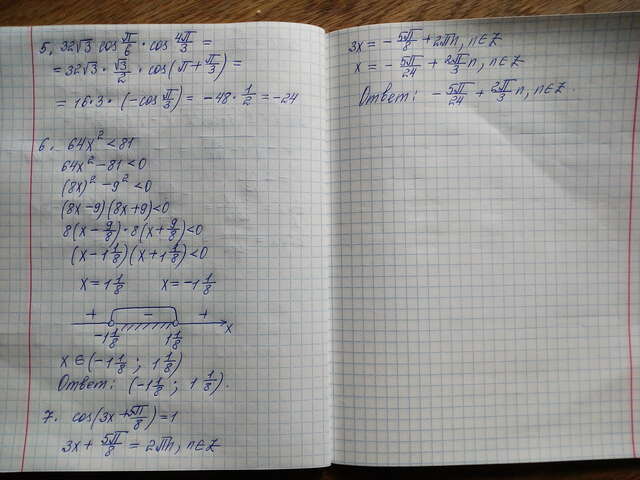 5, 32√3 cos π/6 · cos 4π/3 =
= 32√3 · √3/2 · cos(π + π/3) =
= 16·3 · (-cos π/3) = -48 · 1/2 = -24
6. 64x² < 81
64x² - 81 < 0
(8x)² - 9² < 0
(8x-9)(8x+9) < 0
8(x - 9/8) · 8(x + 9/8) < 0
(x - 1 1/8)(x + 1 1/8) < 0
x = 1 1/8 x = -1 1/8
+ - +
-1 1/8 1 1/8 x
x ∈ (-1 1/8 ; 1 1/8)
Ответ: (-1 1/8 ; 1 1/8).
7. cos(3x + 5π/8) = 1
3x + 5π/8 = 2πn, n∈Z
3x = - 5π/8 + 2πn, n∈Z
x = - 5π/24 + 2π/3 n, n∈Z
Ответ: - 5π/24 + 2π/3 n, n∈Z.